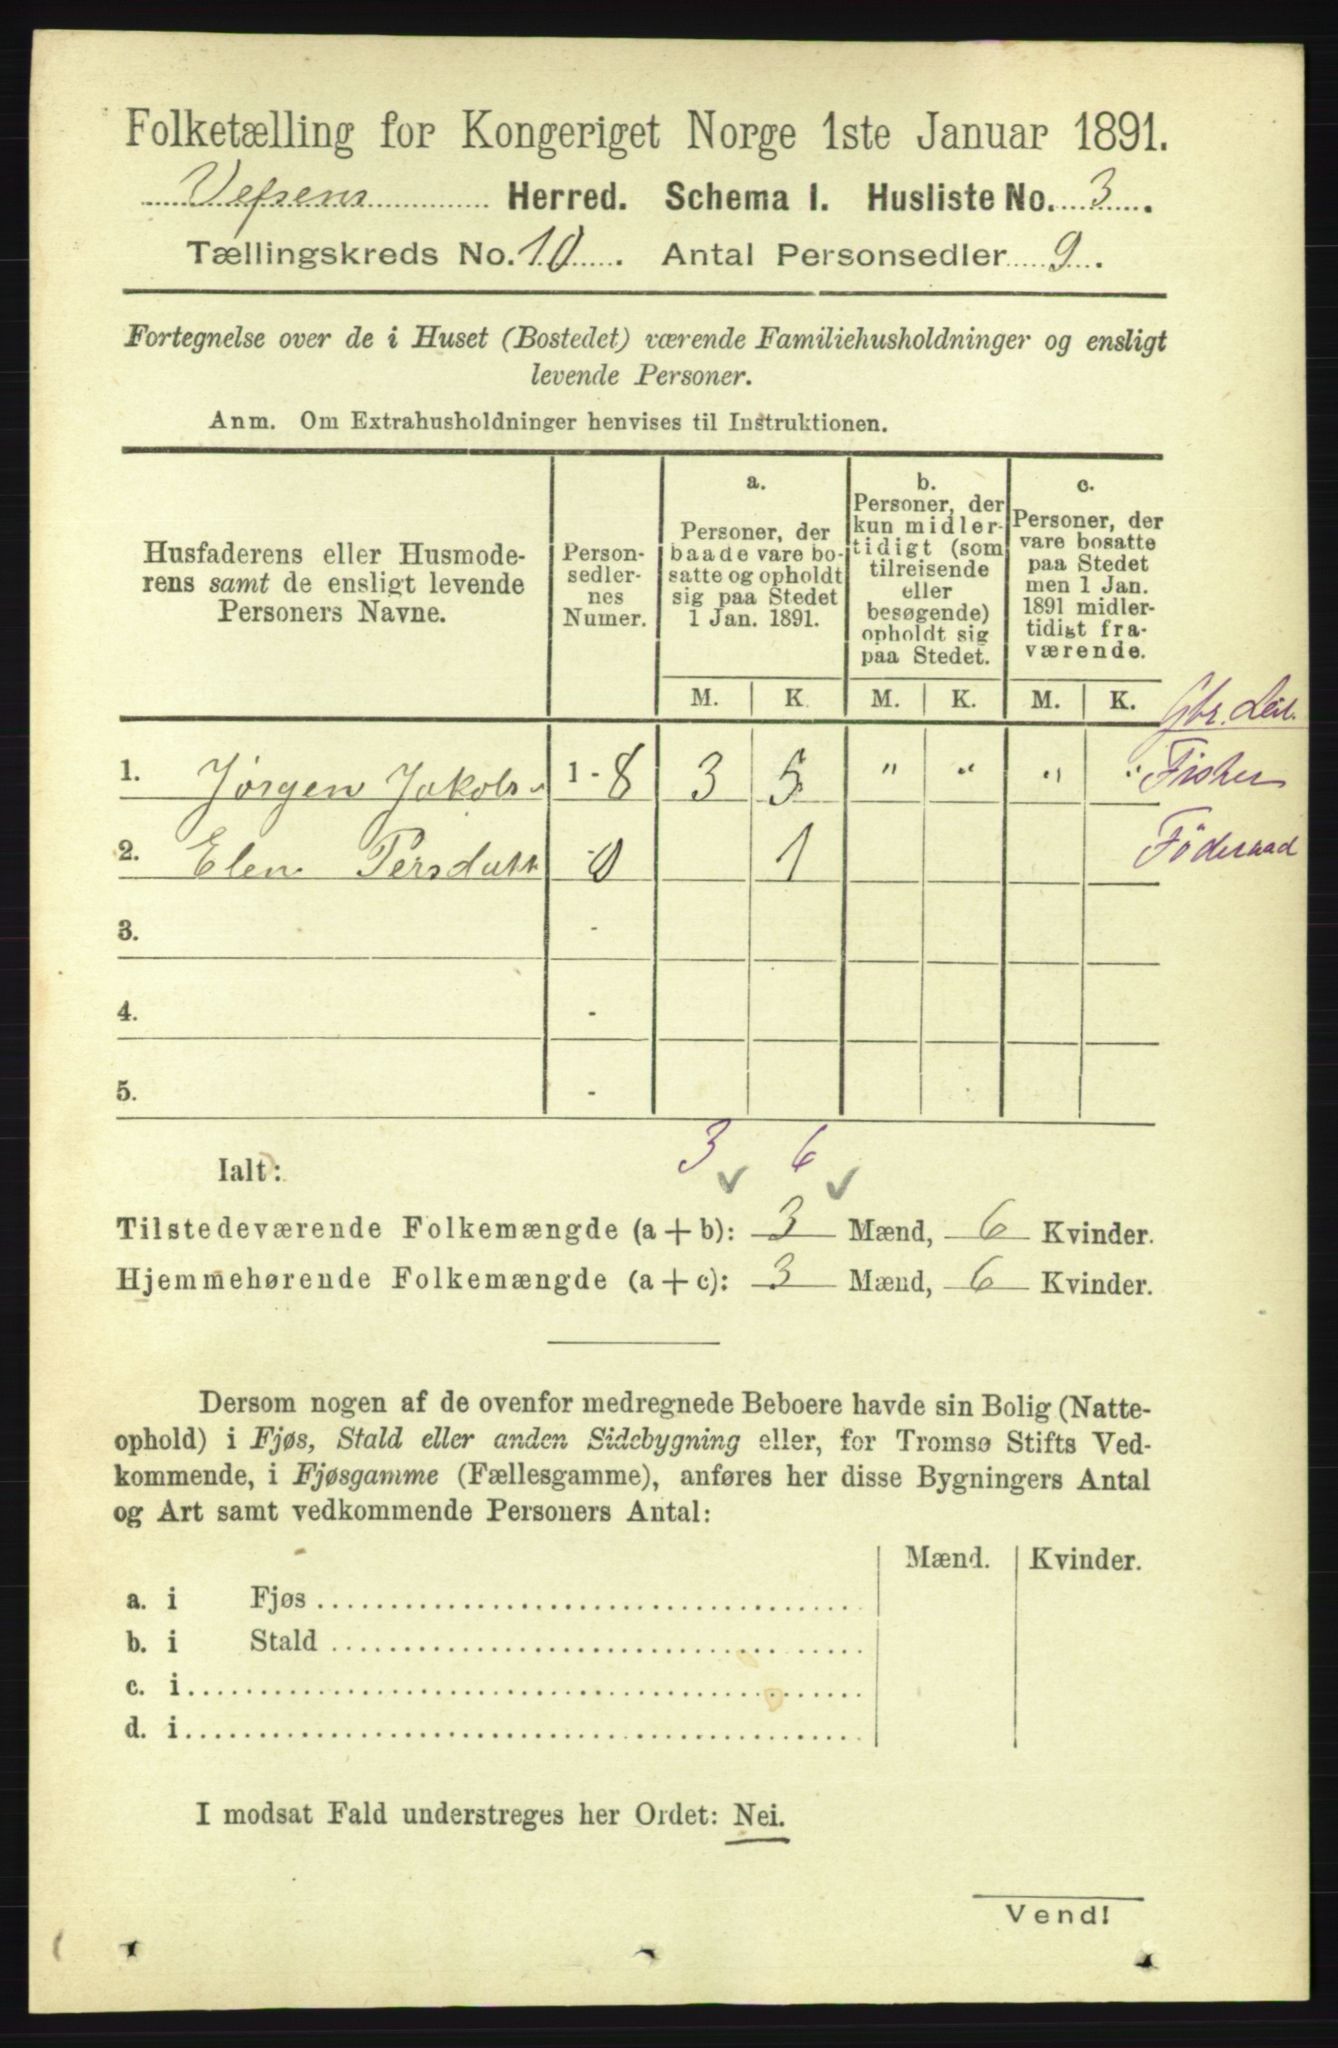 Folketælling for Kongeriget Norge 1ste Januar 1891.
Vefsens Herred. Schema I. Husliste No. 3.
Tællingskreds No. 10. Antal Personsedler 9.
Fortegnelse over de i Huset (Bostedet) værende Familiehusholdninger og ensligt
levende Personer.
Anm. Om Extrahusholdninger henvises til Instruktionen.
Husfaderens eller Husmode-
rens samt de ensligt levende
Personers Navne.
Person-
sedler-
nes
Numer.
a.
Personer, der
baade vare bo-
satte og opholdt
sig paa Stedet
1 Jan. 1891.
b.
Personer, der
kun midler-
tidigt (som
tilreisende
eller
besøgende)
opholdt sig
paa Stedet.
c.
Personer, der
vare bosatte
paa Stedet
men 1 Jan.
1891 midler-
tidigt fra-
værende.
M. K. M. K. M. K.
Gbr. Leil.
1. Jørgen Jakobs 1 - 8 3 5 " " " " Fisker
2. Elen Persdatt - 0 1 Föderaad
3. -
4. -
5. -
Ialt: 3 6
Tilstedeværende Folkemængde (a + b): 3 Mænd, 6 Kvinder.
Hjemmehørende Folkemængde (a + c): 3 Mænd, 6 Kvinder.
Dersom nogen af de ovenfor medregnede Beboere havde sin Bolig (Natte-
ophold) i Fjøs, Stald eller anden Sidebygning eller, for Tromsø Stifts Ved-
kommende, i Fjøsgamme (Fællesgamme), anføres her disse Bygningers Antal
og Art samt vedkommende Personers Antal:
Mænd. Kvinder.
a. i Fjøs
b. i Stald
c. i
d. i
I modsat Fald understreges her Ordet: Nei.
Vend!